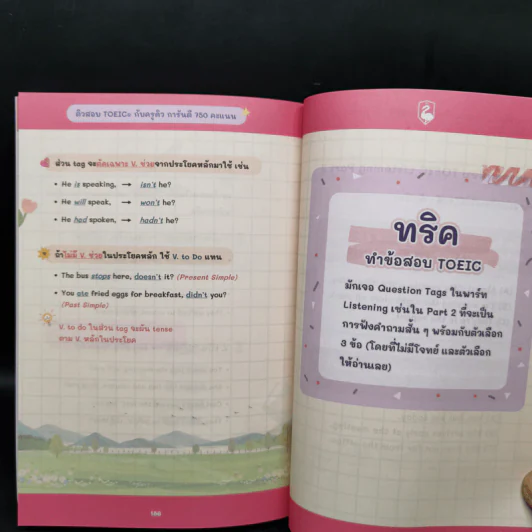 ติวสอบ TOEIC® กับครูดิว การันตี 750 คะแนน
ส่วน tag จะตัดเฉพาะ V. ช่วยจากประโยคหลักมาใช้ เช่น
• He is speaking, → isn't he?
• He will speak, → won't he?
• He had spoken, → hadn't he?
ถ้าไม่มี V. ช่วยในประโยคหลัก ใช้ V. to Do แทน
• The bus stops here, doesn't it? (Present Simple)
• You ate fried eggs for breakfast, didn't you?
(Past Simple)
V. to do ในส่วน tag จะผัน tense
ตาม V. หลักในประโยค
186
ทริค
ทำข้อสอบ TOEIC
มักเจอ Question Tags ในพาร์ท
Listening เช่นใน Part 2 ที่จะเป็น
การฟังคำถามสั้น ๆ พร้อมกับตัวเลือก
3 ข้อ (โดยที่ไม่มีโจทย์ และตัวเลือก
ให้อ่านเลย)